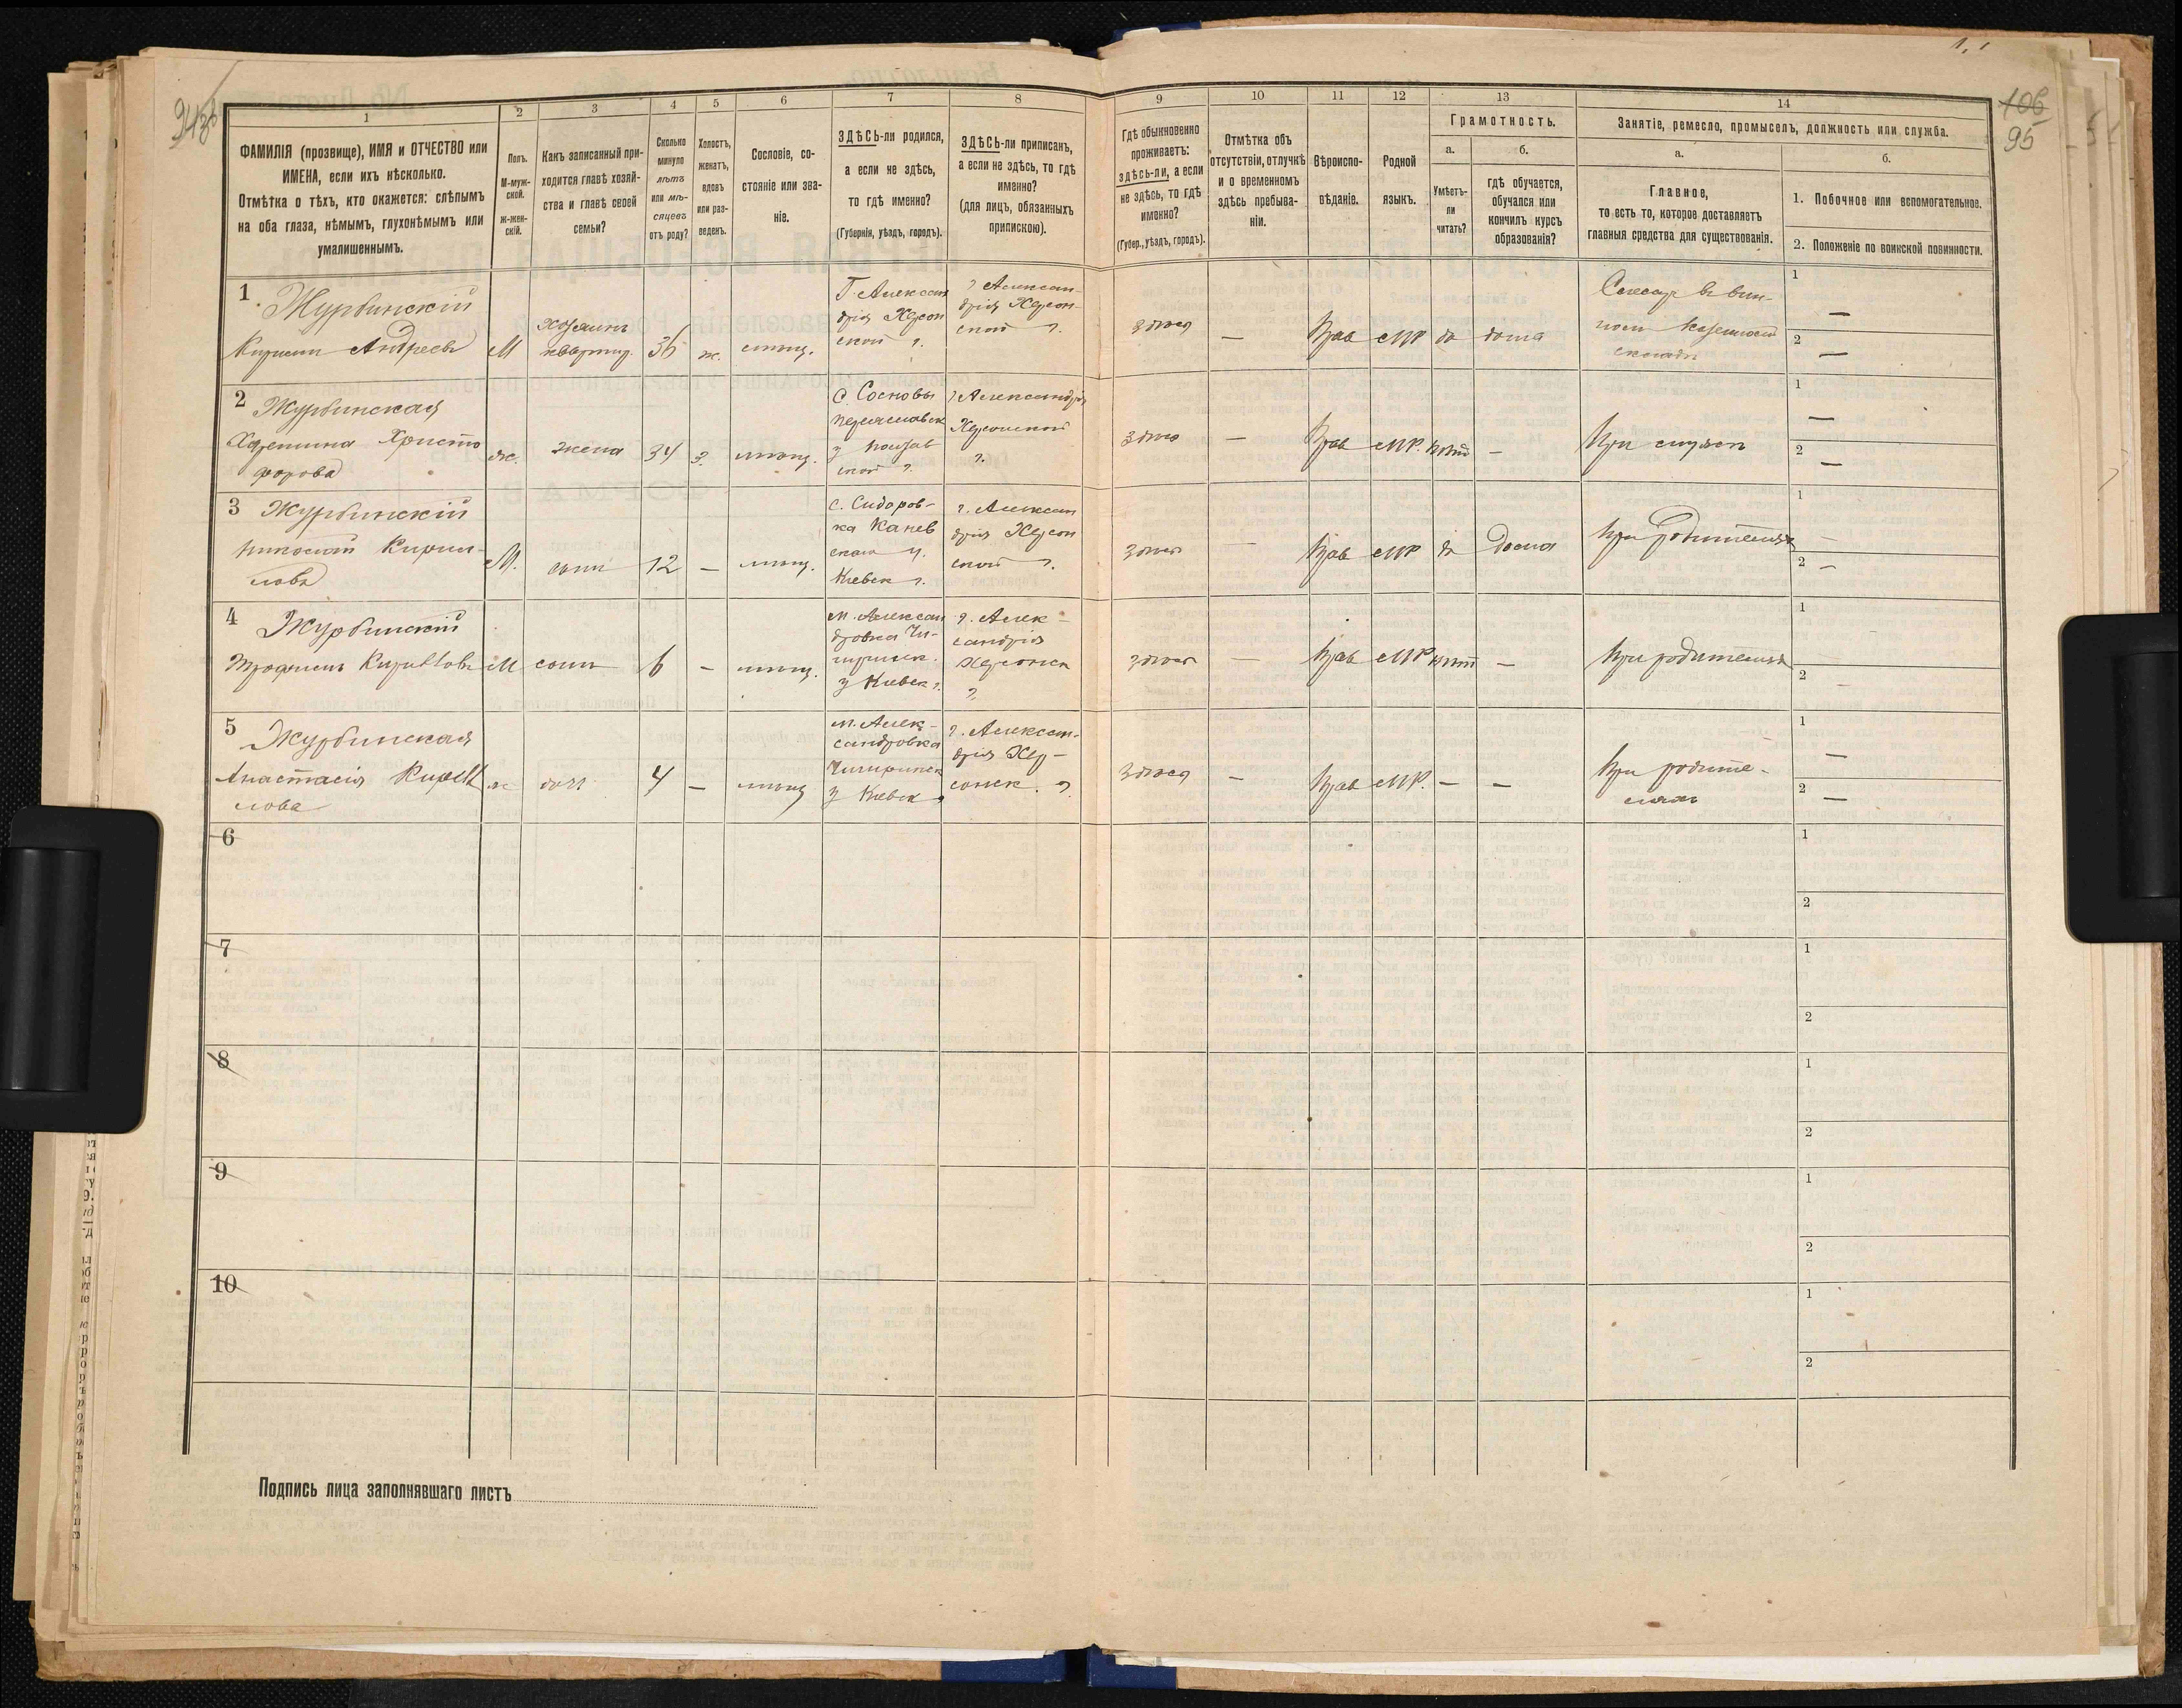 106
95
1 2 3 4 5 6 7 8 9 10 11 12 13 14
ФАМИЛІЯ (прозвище), ИМЯ и ОТЧЕСТВО или
ИМЕНА, если ихъ нѣсколько.
Отмѣтка о тѣхъ, кто окажется: слѣпымъ
на оба глаза, нѣмымъ, глухонѣмымъ или
умалишеннымъ.
Полъ.
М-муж-
ской.
ж-жен-
скій.
Какъ записанный при-
ходится главѣ хозяй-
ства и главѣ своей
семьи?
Сколько
минуло
лѣтъ
или мѣ-
сяцевъ
отъ роду?
Холостъ,
женатъ,
вдовъ
или раз-
веденъ.
Сословіе, со-
стояніе или зва-
ніе.
ЗДѢСЬ-ли родился,
а если не здѣсь,
то гдѣ именно?
(Губернія, уѣздъ, городъ).
ЗДѢСЬ-ли приписанъ,
а если не здѣсь, то гдѣ
именно?
(для лицъ, обязанныхъ
припискою).
Гдѣ обыкновенно
проживаетъ:
здѣсь-ли, а если
не здѣсь, то гдѣ
именно?
(Губер., уѣздъ, городъ).
Отмѣтка объ
отсутствіи, отлучкѣ
и о временномъ
здѣсь пребыва-
ніи.
Вѣроиспо-
вѣданіе.
Родной
языкъ.
Грамотность.
а.
Умѣетъ-
ли
читать?
б.
гдѣ обучается,
обучался или
кончилъ курсъ
образованія?
Занятіе, ремесло, промыселъ, должность или служба.
а.
Главное,
то есть то, которое доставляетъ
главныя средства для существованія.
б.
1. Побочное или вспомогательное.
2. Положеніе по воинской повинности.
1 Журбинскій
Кирилъ Андреевъ
М
Хозяинъ
квартир.
36
ж.
мѣщ.
Г. Алексан
дрія Херсон
ской г.
г Алексан-
дрія Херсон-
ской г.
здѣся
—
Прав
МР
да
дома
Слесар въ вин-
номъ казенномъ
складѣ
1 —
2 —
2 Журбинская
Христо
форова
ж.
жена
34
з.
мѣщ.
С. Сосновы
Переяславск
у Полтав
ской г.
г Александрія
Херсонской
г.
здѣся
—
Прав
МР.
нѣтъ
—
При мужѣ
1 —
2 —
3 Журбинскій
Николай Кирил-
ловъ
М.
сынъ
12
—
мѣщ.
с. Сидоров-
ка Канев
ской у.
Киевск г.
г. Алексан
дрія Херсон
ской г.
здѣся
—
Прав
МР
да
Дома
При родителях
1 —
2 —
4 Журбинскій
Трофимъ Кириловъ
М
сынъ
6
—
мѣщ.
м. Алексан
дровка Чи-
гиринск.
у Киевск г.
г. Алек-
сандрія
Херсонск
г.
здѣся
—
Прав
МР
нѣтъ
—
При родителях
1 —
2 —
5 Журбинская
Анастасія Кирил
лова
ж
доч
4
—
мѣщ
м. Алек-
сандровка
Чигиринск
у Киевск г
г. Алексан-
дрія Хер-
сонск. г.
здѣся
—
Прав
МР.
—
—
При родите-
ляхъ
1 —
2 —
6
1
2
7
1
2
8
1
2
9
1
2
10
1
2
Подпись лица заполнявшаго листъ